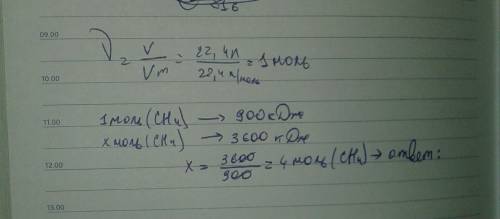 516
09.00
ν = V / Vm = 22,4л / 22,4 л/моль = 1 моль
10.00
11.00
1 моль (CH4) → 900 кДж
x моль (CH4) → 3600 кДж
12.00
x = 3600 / 900 = 4 моль (CH4) → ответ:
13.00